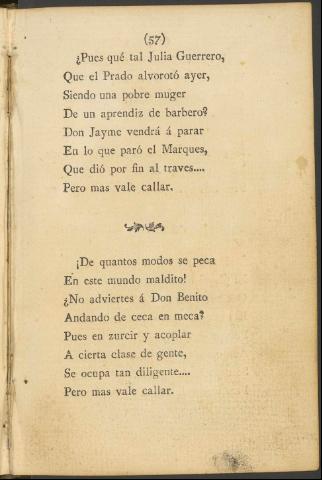 (57)
¿Pues qué tal Julia Guerrero,
Que el Prado alvorotó ayer,
Siendo una pobre muger
De un aprendiz de barbero?
Don Jayme vendrá á parar
En lo que paró el Marques,
Que dió por fin al traves....
Pero mas vale callar.
¡De quantos modos se peca
En este mundo maldito!
¿No adviertes á Don Benito
Andando de ceca en meca?
Pues en zurcir y acoplar
A cierta clase de gente,
Se ocupa tan diligente....
Pero mas vale callar.